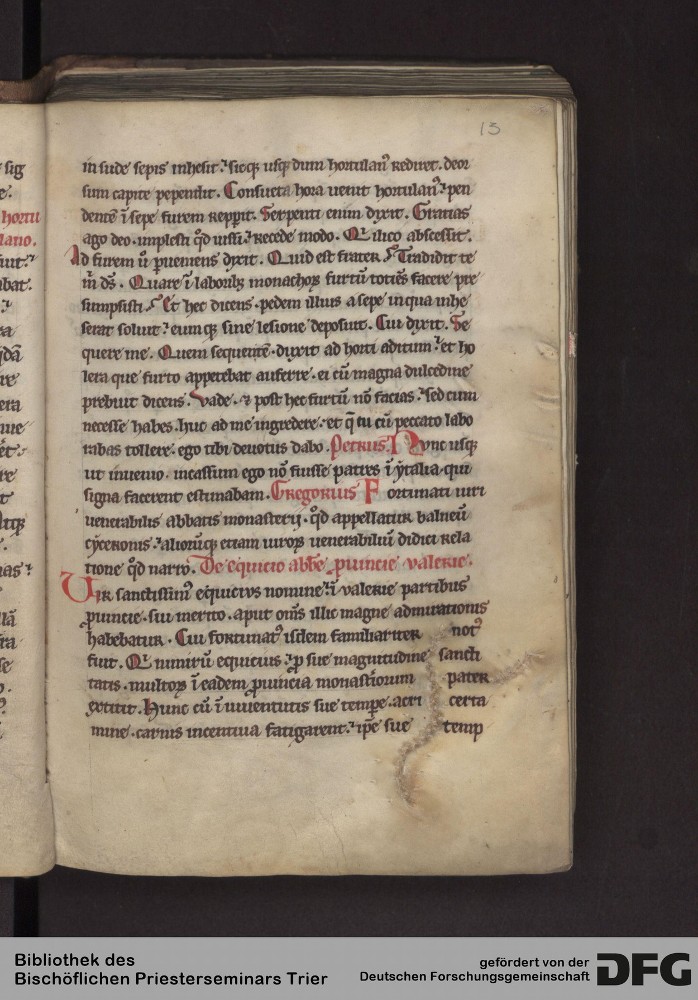 13
in sude sepis inhesit. sicq; usq; dum hortulan⁹ rediret. deor
sum capite pependit. Consueta hora uenit hortulan⁹. pen
dentē ī sepe furem repperit. Serpenti enim dixit. Gratias
ago deo. implesti qd̄ iussi. recede modo. Qi ilico abscessit.
Ad furem ū perueniens dixit. Quid est frater. Tradidit te
m̄ ds̄. Quare ī laborib; monachoꝝ furtū totiēs facere pre
sumpsisti. Et hec dicens. pedem illius a sepe in qua inhe
serat soluit. eumq; sine lesione deposuit. Cui dixit. Se
quere me. Quem sequentē. duxit ad horti aditum. et ho
lera que furto appetebat auferre. ei cū magna dulcedine
prebuit dicens. Vade. et post hec furtū nō facias. sed cum
necesse habes. huc ad me ingredere. et q̄ tu cū peccato labo
rabas tollere. ego tibi deuotus dabo. Petrus. Nunc usq;
ut inuenio. incassum ego nō fuisse patres ī ytalia. qui
signa facerent estimabam. Gregorius Fortunati uiri
uenerabilis abbatis monasterii. qd̄ appellatur balneū
cyceronis. aliorumq; etiam uiroꝝ uenerabiliū didici rela
tione qd̄ narro. De equicio abbe ꝓuincie valerie.
Vir sanctissim⁹ equicius nomine. ī valerie partibus
ꝓuincie. sui merito. aput om̄s illic magne admirationis
habebatur. Cui fortunat⁹ isdem familiariter not⁹
fuit. Qi nimirū equicius. ꝓ sue magnitudine sancti
tatis. multoꝝ ī eadem ꝓuincia monastiorum pater
extitit. Hunc cū ī iuuentutis sue tempe. acri certa
mine. carnis incentiua fatigarent. ipe sue temp
sig
e.
hortu
lano.
Bibliothek des
Bischöflichen Priesterseminars Trier
gefördert von der
Deutschen Forschungsgemeinschaft
DFG